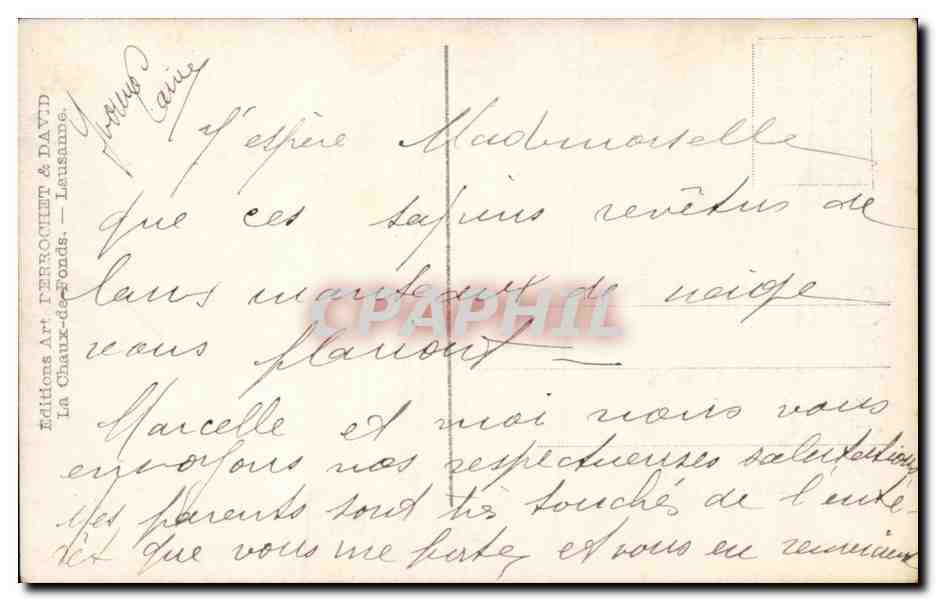 J'espère Mademoiselle
que ces sapins revêtus de
leurs manteaux de neige
vous plairont
Marcelle et moi nous vous
envoyons nos respectueuses salutations
Mes parents sont très touchés de l'inté-
rêt que vous me portez et vous en remercient
Yvonne
Editions Art. PERROCHET & DAVID
La Chaux-de-Fonds. — Lausanne.
CPAPHIL